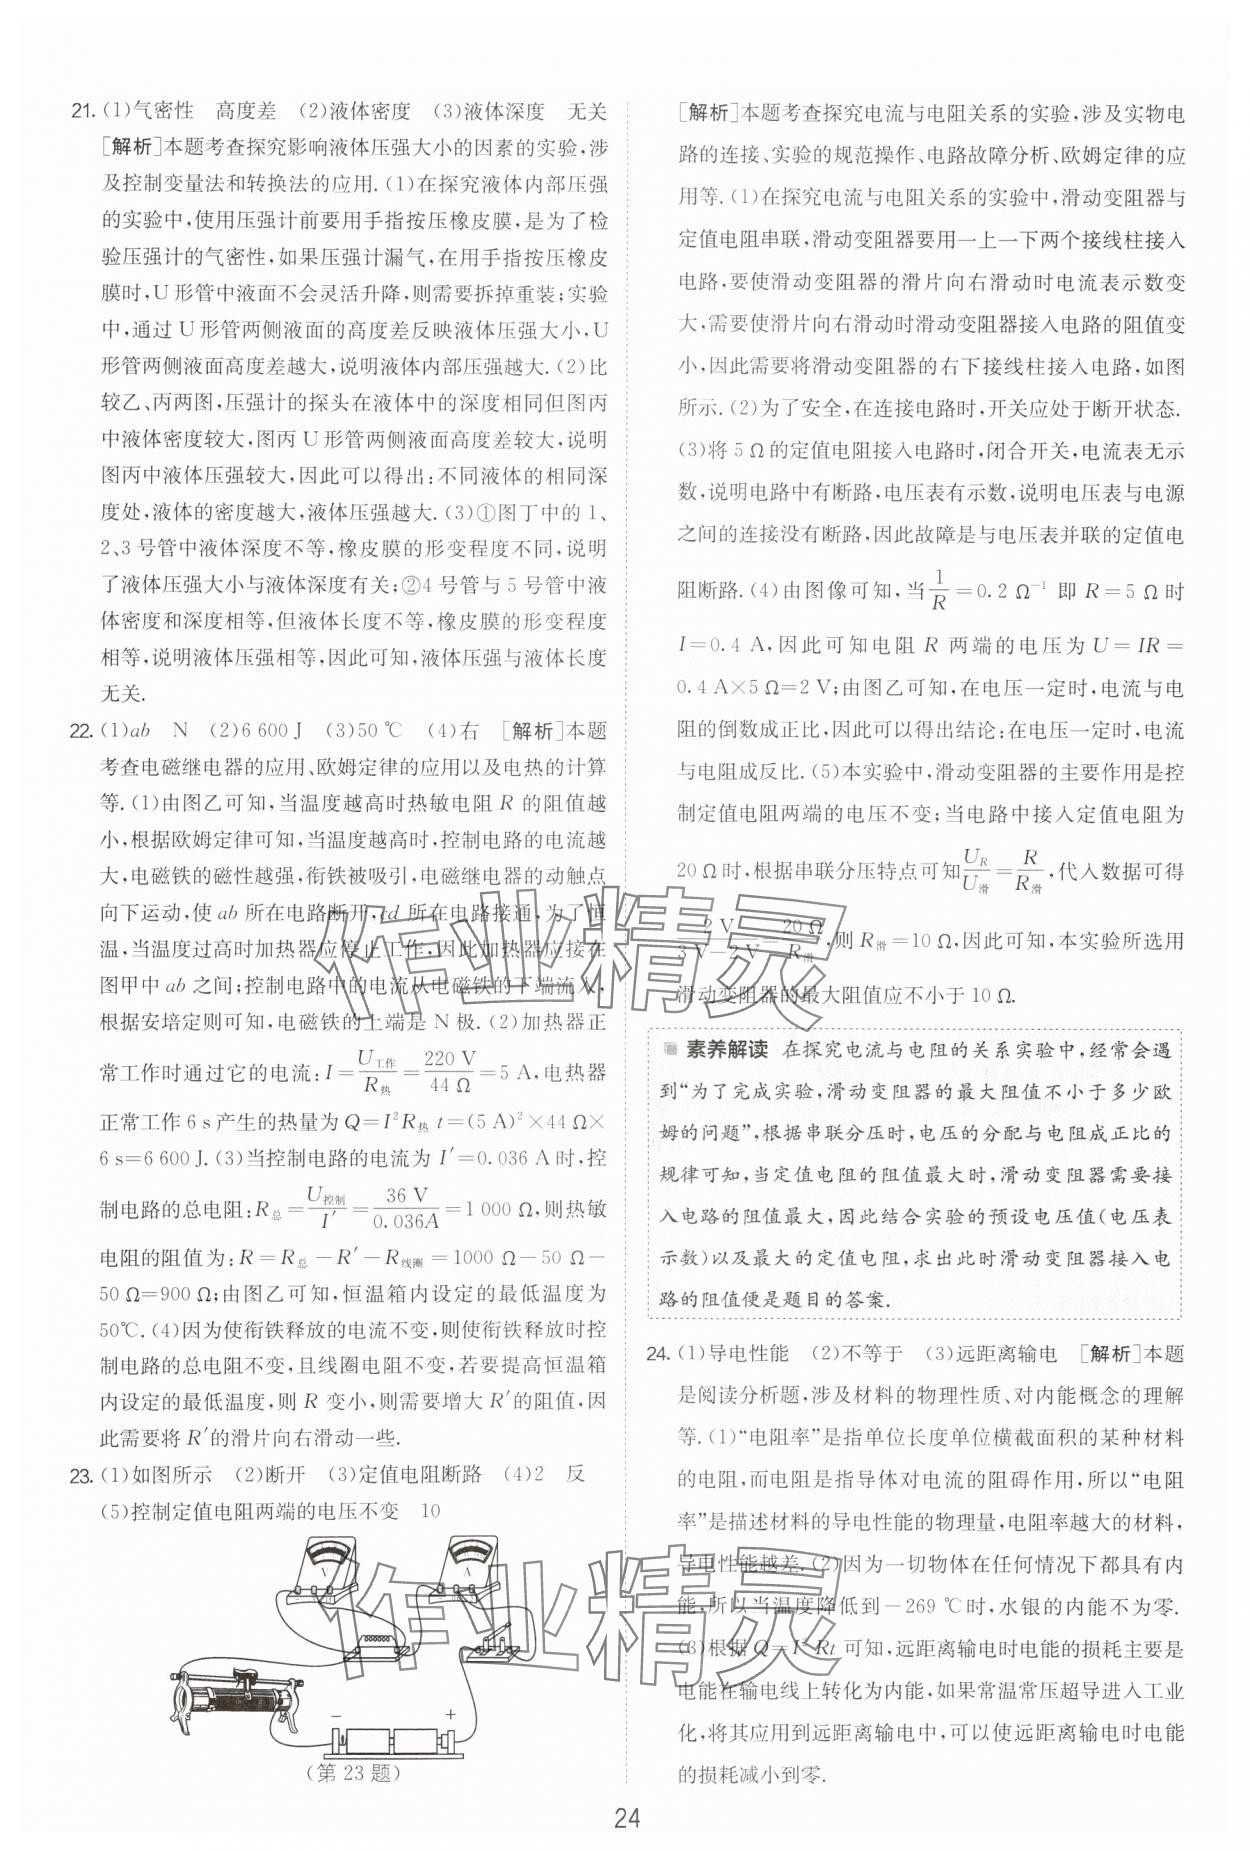 21. (1)气密性　高度差　(2)液体密度　(3)液体深度　无关
[解析]本题考查探究影响液体压强大小的因素的实验,涉
及控制变量法和转换法的应用.(1)在探究液体内部压强
的实验中,使用压强计前要用手指按压橡皮膜,是为了检
验压强计的气密性,如果压强计漏气,在用手指按压橡皮
膜时,U形管中液面不会灵活升降,则需要拆掉重装;实验
中,通过U形管两侧液面的高度差反映液体压强大小,U
形管两侧液面高度差越大,说明液体内部压强越大.(2)比
较乙、丙两图,压强计的探头在液体中的深度相同但图丙
中液体密度较大,图丙U形管两侧液面高度差较大,说明
图丙中液体压强较大,因此可以得出:不同液体的相同深
度处,液体的密度越大,液体压强越大.(3)①图丁中的1、
2、3号管中液体深度不等,橡皮膜的形变程度不同,说明
了液体压强大小与液体深度有关;②4号管与5号管中液
体密度和深度相等,但液体长度不等,橡皮膜的形变程度
相等,说明液体压强相等,因此可知,液体压强与液体长度
无关.
22. (1)ab　N　(2)6 600 J　(3)50 ℃　(4)右　[解析]本题
考查电磁继电器的应用、欧姆定律的应用以及电热的计算
等.(1)由图乙可知,当温度越高时热敏电阻 R 的阻值越
小,根据欧姆定律可知,当温度越高时,控制电路的电流越
大,电磁铁的磁性越强,衔铁被吸引,电磁继电器的动触点
向下运动,使 ab 所在电路断开,cd 所在电路接通,为了恒
温,当温度过高时加热器应停止工作,因此加热器应接在
图甲中 ab 之间;控制电路中的电流从电磁铁的下端流入,
根据安培定则可知,电磁铁的上端是 N 极.(2)加热器正
常工作时通过它的电流:I=U工作/R热=220 V/44 Ω=5 A,电热器
正常工作 6 s 产生的热量为 Q=I²R热 t=(5 A)²×44 Ω×
6 s=6 600 J.(3)当控制电路的电流为 I′=0.036 A 时,控
制电路的总电阻:R总=U控制/I′=36 V/0.036A=1 000 Ω,则热敏
电阻的阻值为:R=R总-R′-R线圈=1000 Ω-50 Ω-
50 Ω=900 Ω;由图乙可知,恒温箱内设定的最低温度为
50℃.(4)因为使衔铁释放的电流不变,则使衔铁释放时控
制电路的总电阻不变,且线圈电阻不变,若要提高恒温箱
内设定的最低温度,则 R 变小,则需要增大 R′的阻值,因
此需要将 R′的滑片向右滑动一些.
23. (1)如图所示　(2)断开　(3)定值电阻断路　(4)2　反
(5)控制定值电阻两端的电压不变　10
V
A
-
+
(第 23 题)
[解析]本题考查探究电流与电阻关系的实验,涉及实物电
路的连接、实验的规范操作、电路故障分析、欧姆定律的应
用等.(1)在探究电流与电阻关系的实验中,滑动变阻器与
定值电阻串联,滑动变阻器要用一上一下两个接线柱接入
电路,要使滑动变阻器的滑片向右滑动时电流表示数变
大,需要使滑片向右滑动时滑动变阻器接入电路的阻值变
小,因此需要将滑动变阻器的右下接线柱接入电路,如图
所示.(2)为了安全,在连接电路时,开关应处于断开状态.
(3)将 5 Ω的定值电阻接入电路时,闭合开关,电流表无示
数,说明电路中有断路,电压表有示数,说明电压表与电源
之间的连接没有断路,因此故障是与电压表并联的定值电
阻断路.(4)由图像可知,当1/R=0.2 Ω⁻¹ 即 R=5 Ω 时
I=0.4 A,因此可知电阻 R 两端的电压为 U=IR=
0.4 A×5 Ω=2 V;由图乙可知,在电压一定时,电流与电
阻的倒数成正比,因此可以得出结论:在电压一定时,电流
与电阻成反比.(5)本实验中,滑动变阻器的主要作用是控
制定值电阻两端的电压不变;当电路中接入定值电阻为
20 Ω时,根据串联分压特点可知UR/U滑=R/R滑,代入数据可得
2 V/3 V-2 V=20 Ω/R滑,则 R滑=10 Ω,因此可知,本实验所选用
滑动变阻器的最大阻值应不小于 10 Ω.
素养解读　在探究电流与电阻的关系实验中,经常会遇
到“为了完成实验,滑动变阻器的最大阻值不小于多少欧
姆的问题”,根据串联分压时,电压的分配与电阻成正比的
规律可知,当定值电阻的阻值最大时,滑动变阻器需要接
入电路的阻值最大,因此结合实验的预设电压值(电压表
示数)以及最大的定值电阻,求出此时滑动变阻器接入电
路的阻值便是题目的答案.
24. (1)导电性能　(2)不等于　(3)远距离输电　[解析]本题
是阅读分析题,涉及材料的物理性质、对内能概念的理解
等.(1)“电阻率”是指单位长度单位横截面积的某种材料
的电阻,而电阻是指导体对电流的阻碍作用,所以“电阻
率”是描述材料的导电性能的物理量,电阻率越大的材料,
导电性能越差.(2)因为一切物体在任何情况下都具有内
能,所以当温度降低到-269 ℃时,水银的内能不为零.
(3)根据 Q=I²Rt 可知,远距离输电时电能的损耗主要是
电能在输电线上转化为内能,如果常温常压超导进入工业
化,将其应用到远距离输电中,可以使远距离输电时电能
的损耗减小到零.
作业精灵
作业精灵
24